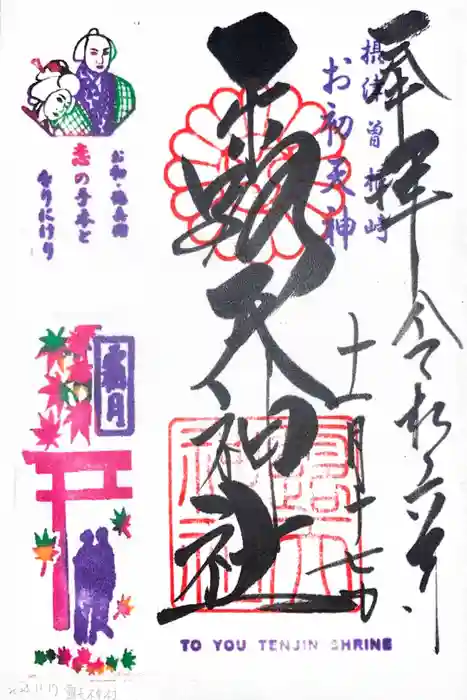 奉拝
令和六年
十一月十七日
摂津 曽根崎
お初天神
露天神社
お初・徳兵衛
恋の手本と
なりにけり
霜月
TO YOU TENJIN SHRINE
11.17 露天神社